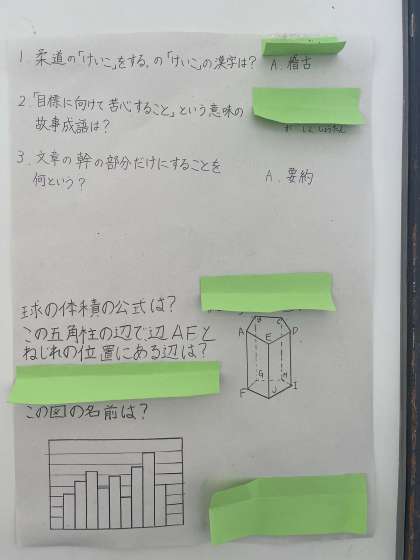 1. 柔道の「けいこ」をする。の「けいこ」の漢字は? A. 稽古
2. 「目標に向けて苦心すること」という意味の
故事成語は?
3. 文章の幹の部分だけにすることを
何という? A. 要約
球の体積の公式は?
この五角柱の辺で辺AEと
ねじれの位置にある辺は?
A E D
G H
F J I
この図の名前は?